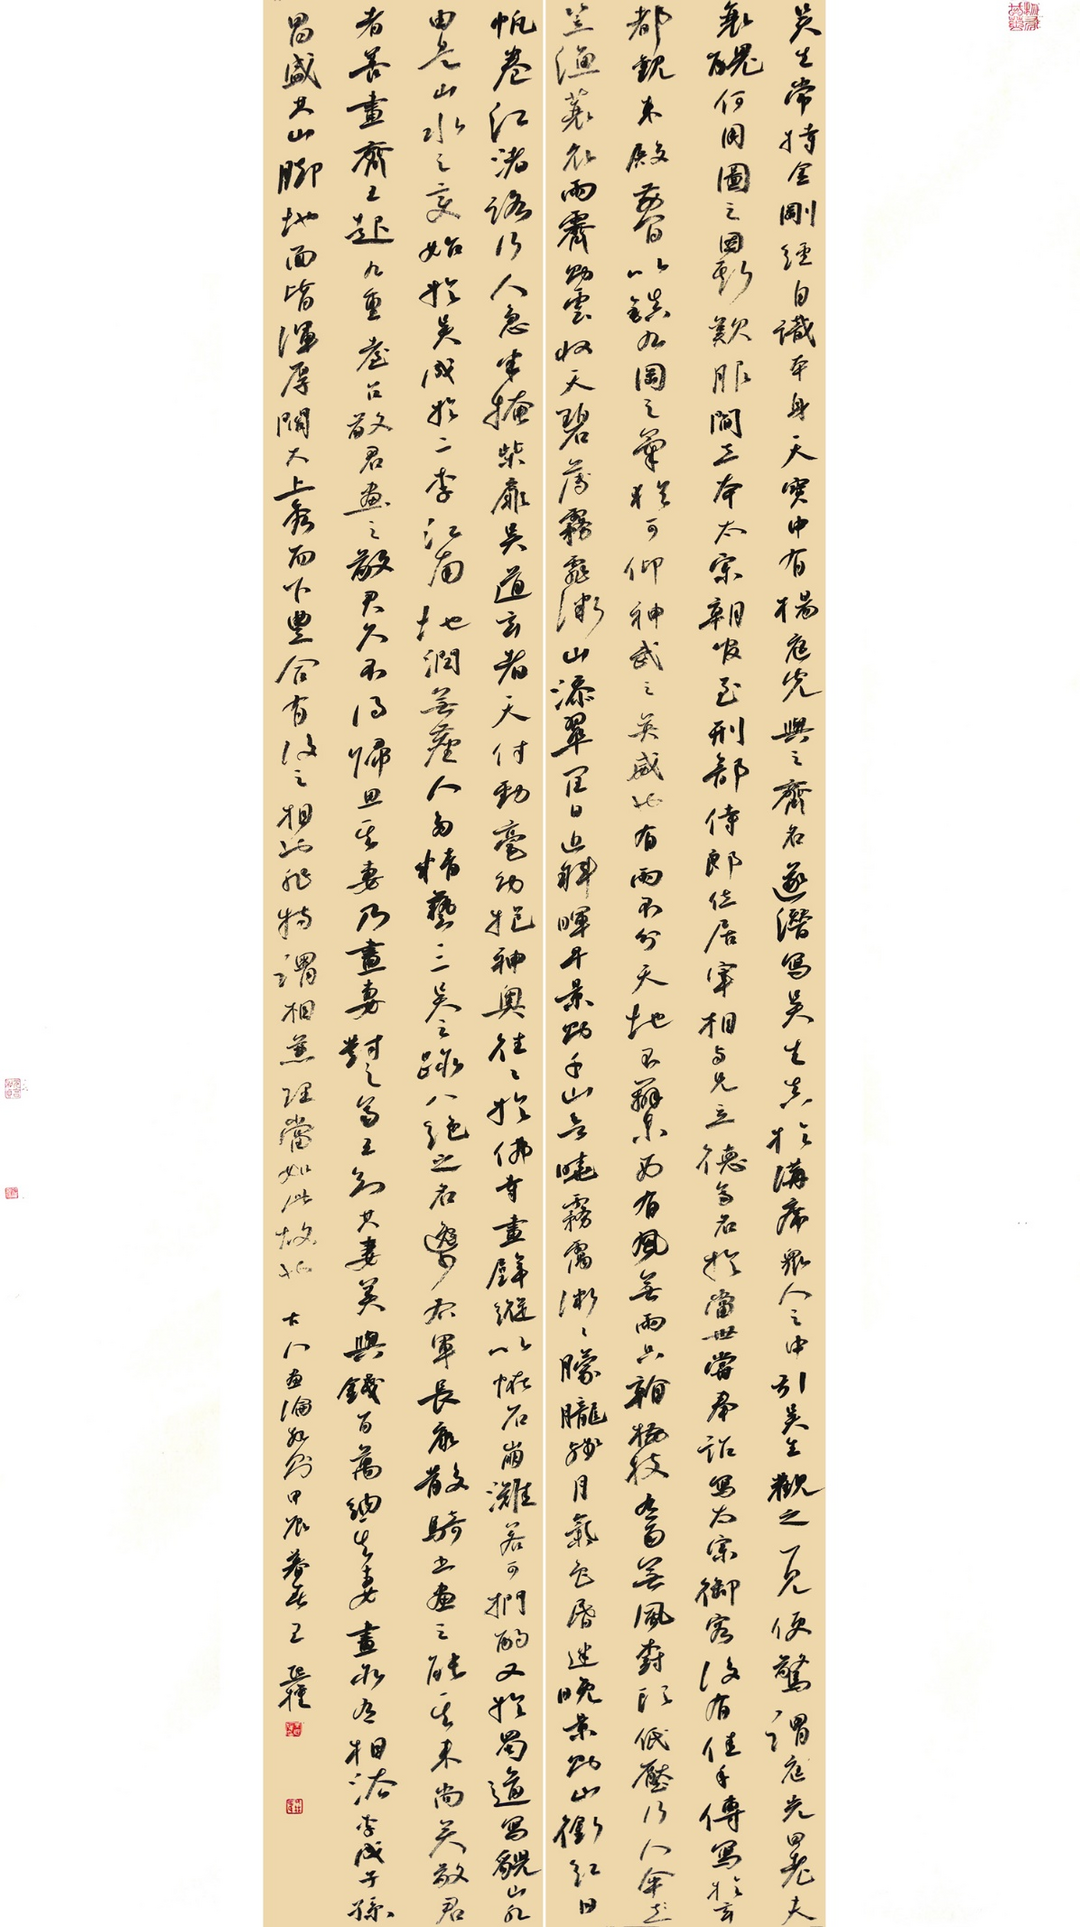 吳生常持金剛經自識本身天寶中有楊庭光與之齊名遂潛寫吳生真於講席眾人之中引吳生觀之一見便驚謂庭光曰老夫
衰醜何用圖之因斯歎服閻立本太宗朝官至刑部侍郎位居宰相與兄立德齊名於當世嘗奉詔寫太宗御容後有佳手傳寫於玄
都觀東殿前間以鎮九岡之氣猶可仰神武之英威也有雨不分天地不辨東西有風無雨只看樹枝有雨無風樹頭低壓行人傘笠
漁蓑衣雨霽則雲收天碧薄霧霏微山添翠潤日近斜暉早景則千山欲曉霧靄微微朦朧殘月氣色昏迷晚景則山銜紅日
帆卷江渚路行人急半掩柴扉吳道玄者天付勁毫幼抱神奧往往於佛寺畫壁縱以怪石崩灘若可捫酌又於蜀道寫貌山水
由是山水之變始於吳成於二李江南地潤無塵人多精藝三吳之跡八絕之名逸少右軍長康散騎書畫之能其來尚矣敬君
者善畫齊王起九重臺召敬君畫之敬君久不得歸思其妻乃畫妻對之齊王知其妻美與錢百萬納其妻畫家有相法李成子孫
昌盛其山腳地面皆渾厚闊大上秀而下豐合有後之相也非特謂相兼理當如此故也 古人畫論數則甲辰暮春王